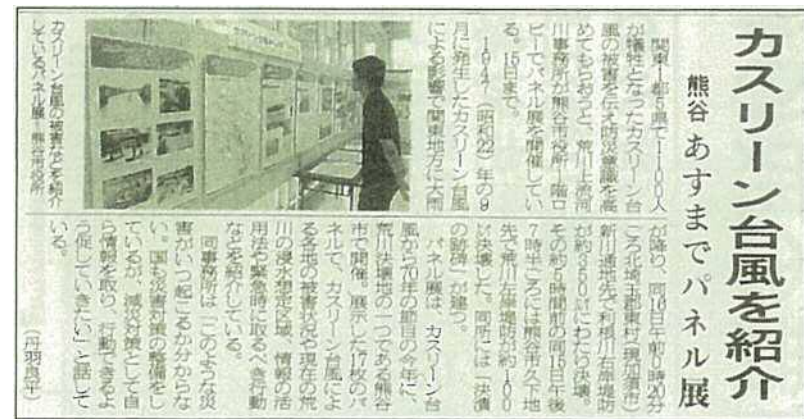 カスリーン台風を紹介
熊谷 あすまでパネル展
関東1都5県で1100人
が犠牲となったカスリーン台
風の被害を伝え防災意識を高
めてもらおうと、荒川上流河
川事務所が熊谷市役所1階ロ
ビーでパネル展を開催してい
る。15日まで。
1947(昭和22)年の9
月に発生したカスリーン台風
による影響で関東地方に大雨
が降り、同16日午前0時20分
ごろ北埼玉郡東村(現加須市)
新川通地先で利根川右岸堤防
が約350㍍にわたり決壊。
その約5時間前の同15日午後
7時半ごろには熊谷市久下地
先で荒川左岸堤防が約100
㍍決壊した。同所には「決潰
の跡碑」が建つ。
パネル展は、カスリーン台
風から70年の節目の今年に、
荒川決壊地の一つである熊谷
市で開催。展示した17枚のパ
ネルで、カスリーン台風によ
る各地の被害状況や現在の荒
川の浸水想定区域、情報の活
用法や緊急時に取るべき行動
などを紹介している。
同事務所は「このような災
害がいつ起こるか分からな
い。国も災害対策の整備をし
ているが、減災対策として自
ら情報を取り、行動できるよ
う促していきたい」と話して
いる。
(丹羽良平)
カスリーン台風の被害などを紹介
しているパネル展=熊谷市役所